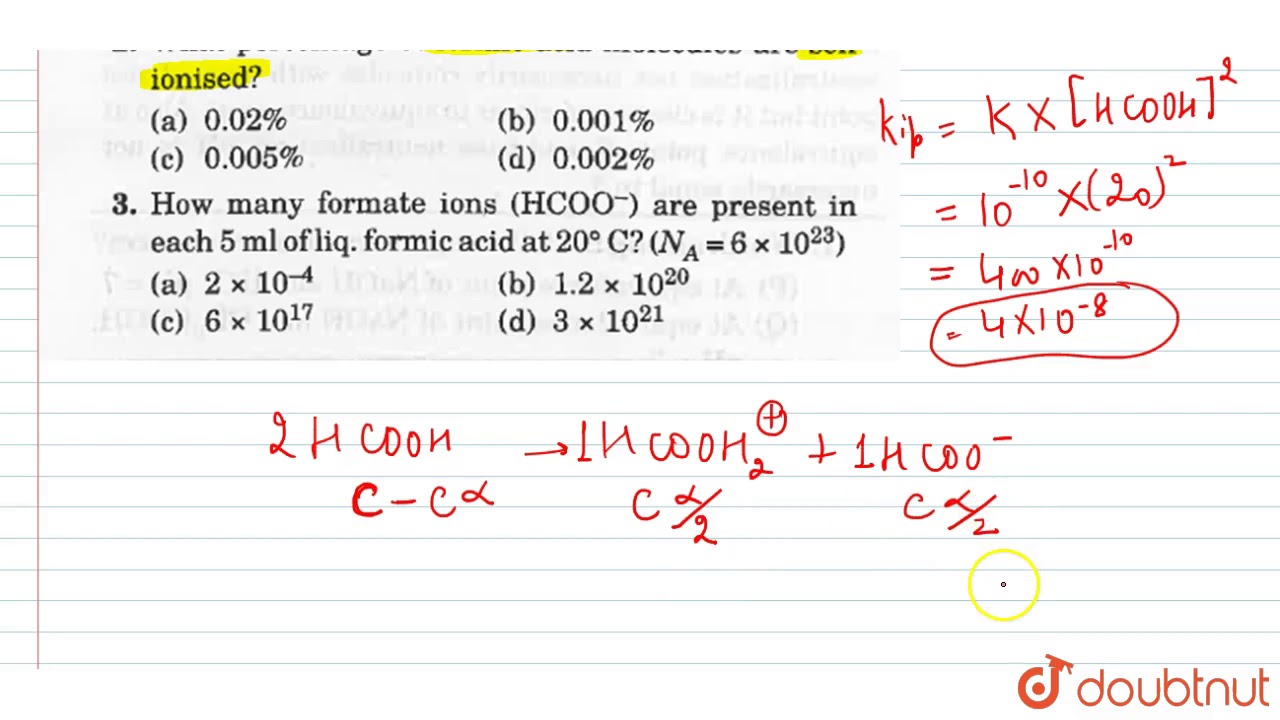 ionised?
(a) 0.02% (b) 0.001%
(c) 0.005% (d) 0.002%
3. How many formate ions (HCOO⁻) are present in
each 5 ml of liq. formic acid at 20° C? (N_A = 6 × 10²³)
(a) 2 × 10⁻⁴ (b) 1.2 × 10²⁰
(c) 6 × 10¹⁷ (d) 3 × 10²¹
Kip = K × [HCOOH]²
= 10⁻¹⁰ × (20)²
= 400 × 10⁻¹⁰
= 4 × 10⁻⁸
2HCOOH → 1HCOOH₂⊕ + 1HCOO⁻
C – Cα Cα/2 Cα/2
doubtnut